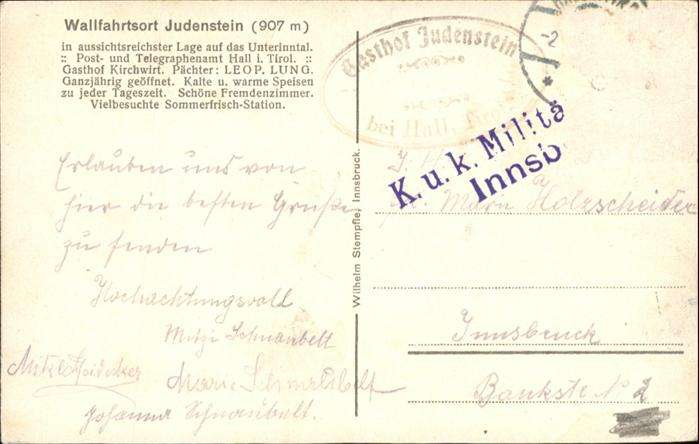 Wallfahrtsort Judenstein (907 m)
in aussichtsreichster Lage auf das Unterinntal.
:: Post- und Telegraphenamt Hall i. Tirol. ::
Gasthof Kirchwirt. Pächter: LEOP. LUNG.
Ganzjährig geöffnet. Kalte u. warme Speisen
zu jeder Tageszeit. Schöne Fremdenzimmer.
Vielbesuchte Sommerfrisch-Station.
Erlauben uns von
hier die besten Grüße
zu senden
Hochachtungsvoll
Mitzi Schnaubelt
Marie Schnaubelt
Johanna Schnaubelt.
Wilhelm Stempfle, Innsbruck.
Gasthof Judenstein
bei Hall, Tirol
K. u. k. Militä
Innsb
Holzscheider
Innsbruck
Bankstr No 2